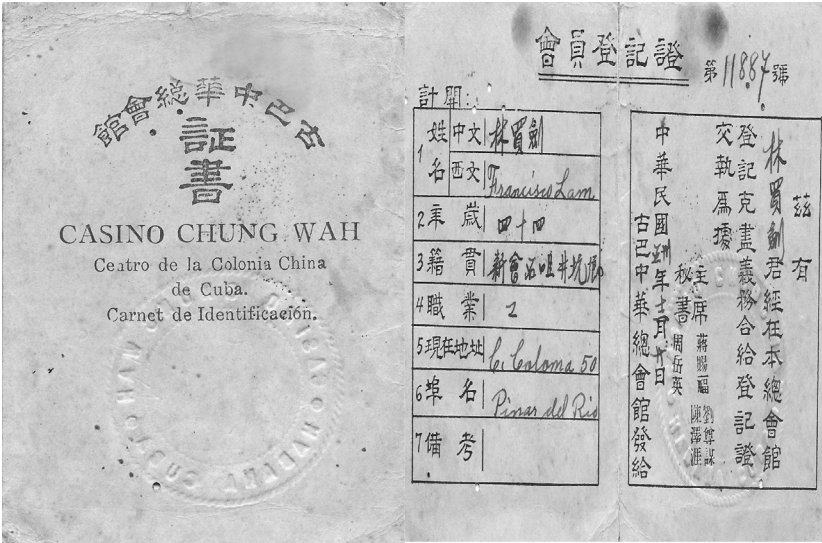 古巴中華總會館
証書
CASINO CHUNG WAH
Centro de la Colonia China
de Cuba.
Carnet de Identificación.
會員登記證
第11887號
計開:
1 姓名
中文 林買劍
西文 Francisco Lam
2 年歲 四十四
3 籍貫 新會
4 職業 工
5 現在地址 C. Coloma 50
6 埠名 Pinar del Rio
7 備考
茲有
林買劍君經在本總會館
登記克盡義務合給登記證
交執為據
主席 蔣賜福 劉尊謀
秘書 周岳英 陳澤涯
中華民國 年十二月 日
古巴中華總會館發給